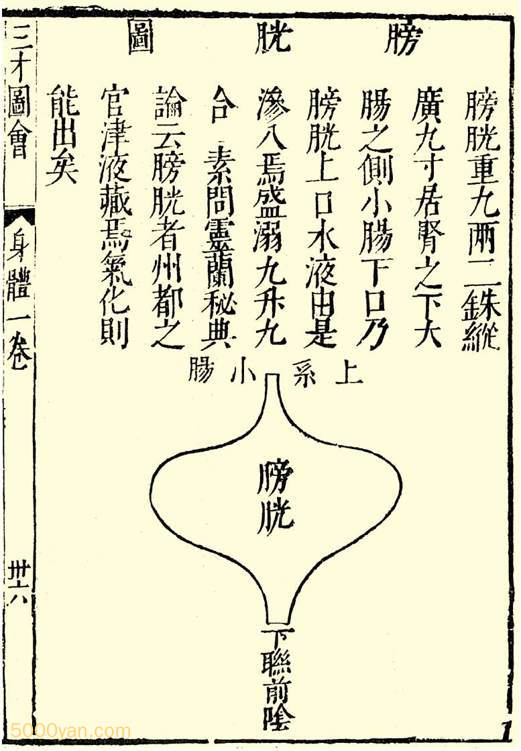 膀胱圖
膀胱重九兩二銖縱
廣九寸居腎之下大
腸之側小腸下口乃
膀胱上口水液由是
滲入焉盛溺九升九
合 素問靈蘭秘典
論云膀胱者州都之
官津液藏焉氣化則
能出矣
上系小腸
膀胱
下聯前陰
三才圖會
身體一卷
卅六
5000yan.com
1